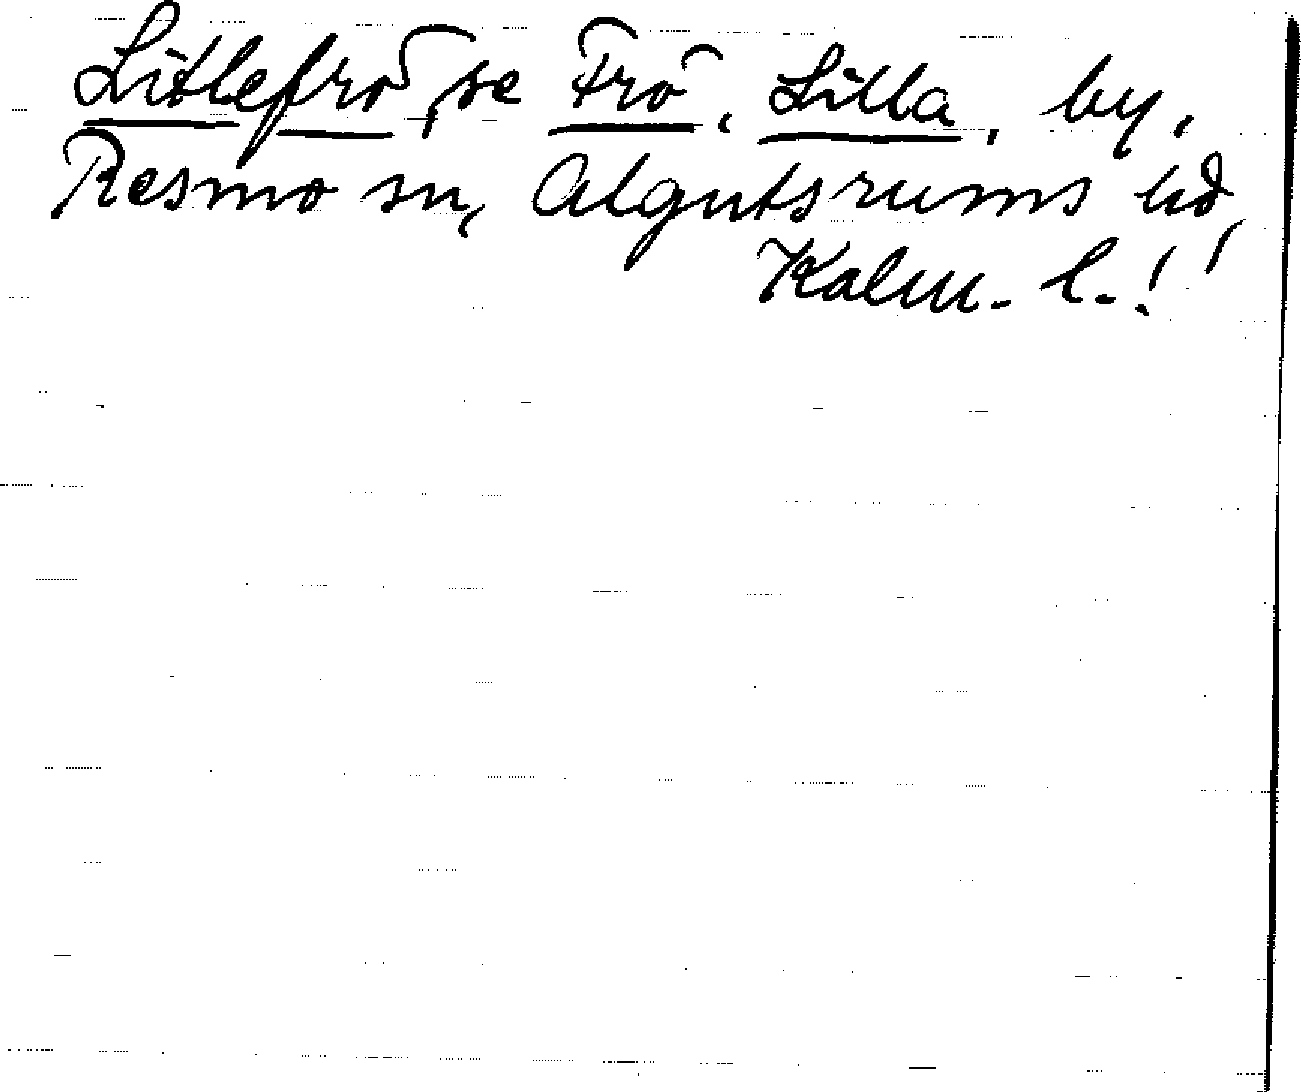 Litlefrö, se Frö, Lilla, by,
Resmo sn, Algutsrums hd,
Kalm. l.!